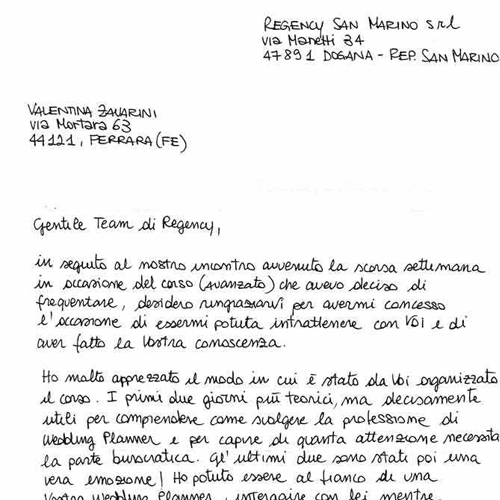 REGENCY SAN MARINO srl
via Manetti 34
47891 DOGANA - REP. SAN MARINO
VALENTINA ZAVARINI
via Mortara 63
44121, FERRARA (FE)
Gentile Team di Regency,
in seguito al nostro incontro avvenuto la scorsa settimana
in occasione del corso (avanzato) che avevo deciso di
frequentare, desidero ringraziarvi per avermi concesso
l'occasione di essermi potuta intrattenere con Voi e di
aver fatto la Vostra conoscenza.
Ho molto apprezzato il modo in cui è stato da Voi organizzato
il corso. I primi due giorni più teorici, ma decisamente
utili per comprendere come svolgere la professione di
Wedding Planner e per capire di quanta attenzione necessita
la parte burocratica. Gl'ultimi due sono stati poi una
vera emozione! Ho potuto essere al fianco di una
Vostra Wedding Planner, interagire con lei mentre